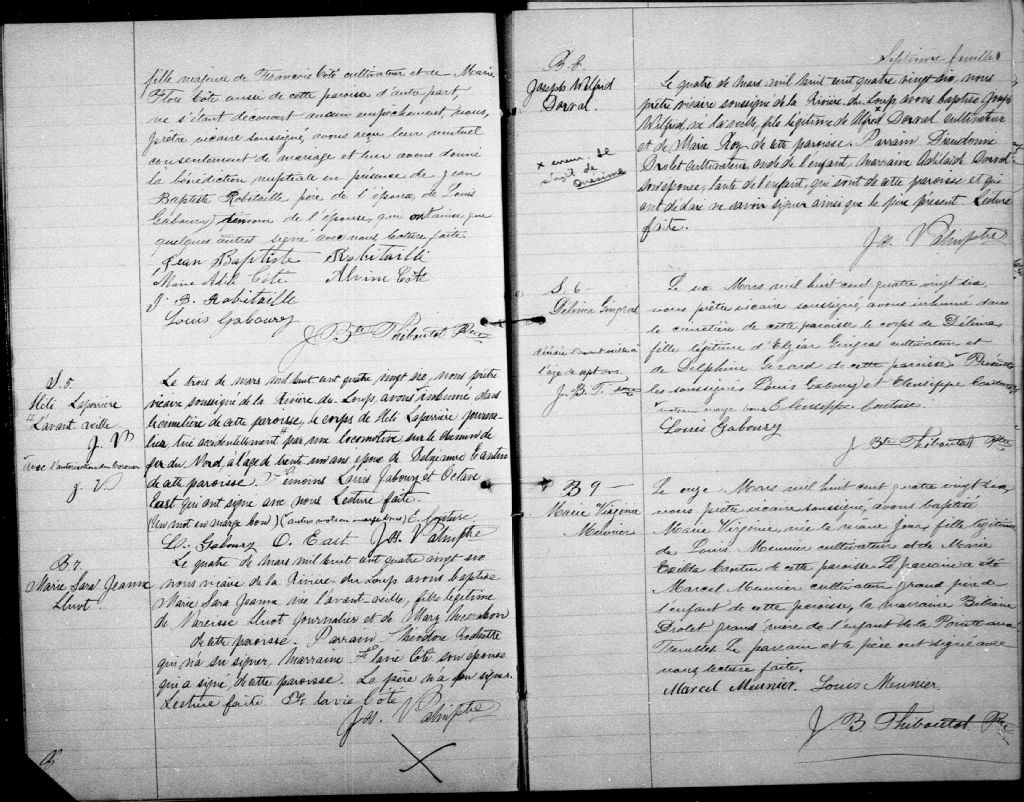 fille majeure de François Côté cultivateur et de Marie
Flore Côté aussi de cette paroisse d'autre part
ne s'étant découvert aucun empêchement, nous,
prêtre vicaire soussigné, avons reçu leur mutuel
consentement de mariage et leur avons donné
la bénédiction nuptiale en présence de Jean
Baptiste Robitaille père de l'époux, de Louis
Gaboury témoin de l'épouse, qui ont ainsi que
quelques autres signé avec nous lecture faite.
Jean Baptiste Robitaille
Marie Adèle Côté Alvine Côté
J. B. Robitaille
Louis Gaboury
J Bte Thiboutot Ptre
S. 5.
Laperrière
L'avant veille
J. V
avec l'autorisation du Coroner
J. V
Le trois de mars mil huit cent quatre vingt six, nous prêtre
vicaire soussigné de la Rivière du Loup, avons inhumé dans
le cimetière de cette paroisse, le corps de Laperrière journa-
lier, tué accidentellement par une locomotive sur le chemin de
fer du Nord, à l'âge de trente un ans, époux de
de cette paroisse. Témoins Louis Gaboury et Octave
East qui ont signé avec nous Lecture faite.
(Un mot en marge bon) (autres mots en marge bons) E. Couture
L. Gaboury O. East Jos. V Ptre
B 7.
Marie Sara Jeanne
Lluot
Le quatre de mars mil huit cent quatre vingt six
nous vicaire de la Rivière du Loup avons baptisé
Marie Sara Jeanne née l'avant-veille, fille légitime
de Narcisse Lluot journalier et de Mary
de cette paroisse. Parrain Théodore
qui n'a su signer, Marraine Flavie Côté son épouse
qui a signé, de cette paroisse. Le père n'a pu signer.
Lecture faite. Flavie Côté
Jos. V Ptre
Septième feuillet
B. 8.
Joseph Wilfrid
Dorval.
x erreur: il
s'agit de
Onésime
Le quatre de mars mil huit cent quatre vingt six, nous
prêtre vicaire soussigné de la Rivière du Loup avons baptisé Joseph
Wilfrid, né la veille, fils légitime de Alfred x Dorval cultivateur
et de Marie Roy de cette paroisse. Parrain Dieudonné
Drolet cultivateur oncle de l'enfant, marraine Adélaïde Dorval
son épouse, tante de l'enfant, qui sont de cette paroisse et qui
ont déclaré ne savoir signer ainsi que le père présent Lecture
faite.
Jos. V Ptre
S. 6 -
Délima Gingras
décédée l'avant veille à
l'âge de sept ans
J. B. T. Ptre
Le six Mars mil huit cent quatre vingt six,
nous prêtre vicaire soussigné, avons inhumé dans
le cimetière de cette paroisse le corps de Délima
fille légitime d'Elzéar Gingras cultivateur et
de Delphine Gérard de cette paroisse. Présents
les soussignés Louis Gaboury et Eleusippe Couture
mots en marge bons Eleusippe Couture
Louis Gaboury
J. Bte Thiboutot Ptre
B 9 -
Marie Virginie
Meunier
Le onze Mars mil huit cent quatre vingt six,
nous prêtre vicaire soussigné, avons baptisé
Marie Virginie, née le même jour, fille légitime
de Louis Meunier cultivateur et de Marie
Exilda de cette paroisse. Le parrain a été
Marcel Meunier cultivateur grand père de
l'enfant de cette paroisse, la marraine Bibiane
Drolet grand'mère de l'enfant de la Pointe aux
Trembles Le parrain et le père ont signé avec
nous lecture faite.
Marcel Meunier. Louis Meunier.
J B Thiboutot Ptre